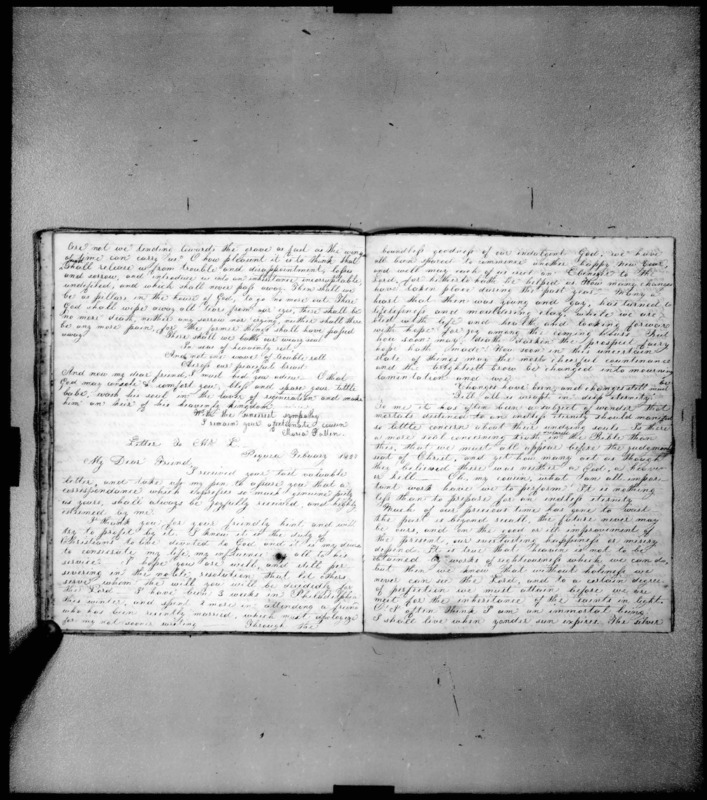 Are not we tending towards the grave as fast as the wings
of time can carry us. O how pleasant it is to think that
shall release us from trouble and disappointment, losses
and sorrow, and introduce us into an inheritance incorruptible,
undefiled, and which shall never pass away. Then shall we
be as pillars in the house of God, to go no more out. There
God shall wipe away all tears from our eyes, there shall be
no more death, neither any sorrow nor crying, neither shall there
be any more pain, for the former things shall have passed
away. There shall we bathe our weary soul
In seas of heavenly rest
And not one wave of trouble roll
Across our peaceful breast
And now my dear friend, I must bid you adieu. O that
God may console & comfort you, bless and spare your little
babe, wash his soul in the laver of regeneration and make
him an heir of his heavenly kingdom.
With the sincerest sympathy
I remain your affectionate cousin
Maria Patten.
Letter To
Pequea February
My Dear Friend,
I received your last valuable
letter, and take up my pen to assure you that a
correspondence which expresses so much genuine piety
as yours, shall always be joyfully received, and highly
esteemed by me.
I thank you for your friendly hint and will
try to profit by it. I know it is the duty of
Christians to live devoted to God and it is my desire
to consecrate my life, my influence & all to his
service. I hope you are well, and still per
severing in the noble resolution that let others
serve whom they will you will be decidedly for
the Lord. I have been 3 weeks in Philadelphia
this winter, and spent 2 more in attending a friend
who has been recently married, which must apologize
for my not sooner writing. Through the
boundless goodness of our indulgent God, we have
all been spared to commence another happy New Year,
and well may each of us erect an Ebenezer to the
Lord, for hitherto hath he helped us. How many changes
have taken place during the past year. Many a
heart that then was young and gay, has turned to
lifelessness and mouldering clay, while we are
blest with life and health and looking forward
with hope for joy among the coming hours. But
how soon may death darken the prospect fairy
hope hath made. How soon in this uncertain
state of things may the most cheerful countenance
and the brightest brow be changed into mourning
lamentation and wo.
Changes have been, and changes still must be
Till all is wrapt in deep eternity.
To me it has often been a subject of wonder that
mortals destined to an endless eternity should manifest
so little concern about their undying souls. Is there
a more solemn truth in the Bible than
this, that we must all appear before the judgment
seat of Christ, and yet how many act as though
they believed there was neither a God, a heaven
or hell. Oh, my cousin, what an all impor
tant work have we to perform. It is nothing
less than to prepare for an endless eternity.
Much of our precious time has gone to waste
the past is beyond recall, the future never may
be ours, and on the good or ill improvement of
the present, our everlasting happiness or misery
depend. It is true that heaven is not to be
obtained by works of righteousness which we can do,
but then we know that without holiness we
never can see the Lord, and to a certain degree
of perfection we must attain before we are
meet for the inheritance of the saints in light.
O! I often think I am an immortal being
I shall live when yonder sun expires. The silver